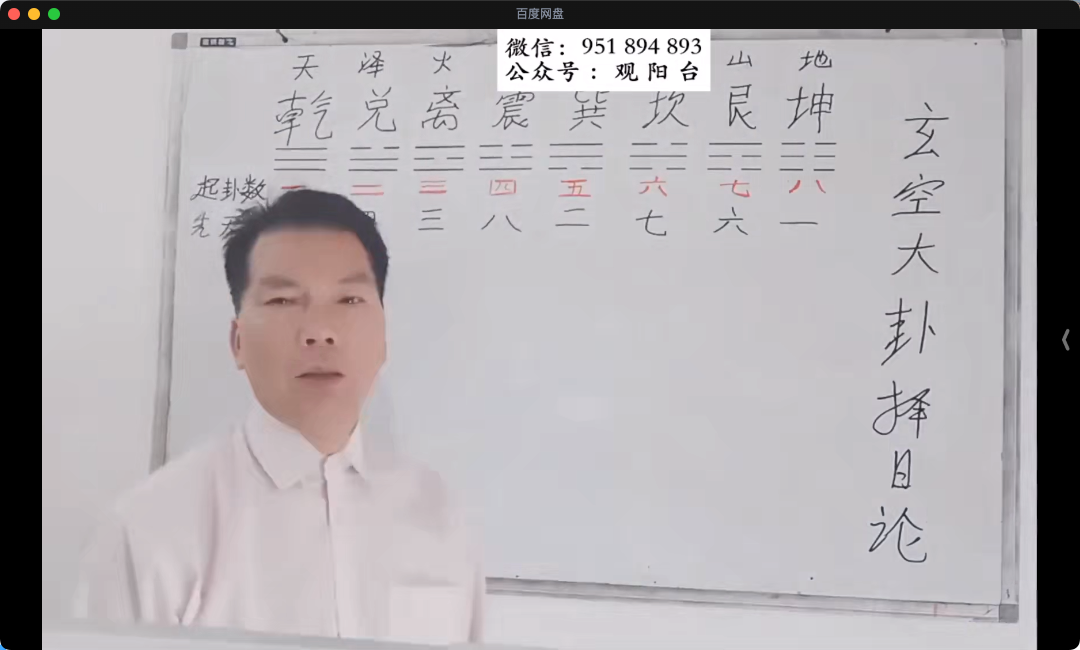 百度网盘
微信：951 894 893
公众号：观阳台
天 泽 火 山 地
乾 兑 离 震 巽 坎 艮 坤
起卦数 一 二 三 四 五 六 七 八
先天 四 三 八 二 七 六 一
玄空大卦择日论